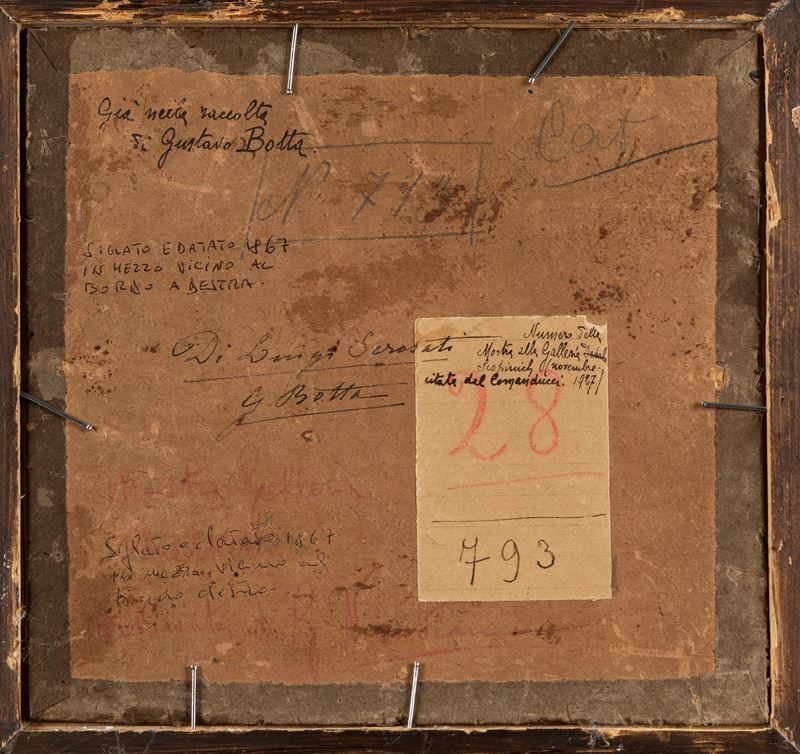 Già nella raccolta
di Gustavo Botta.
Cat
N 713
SIGLATO E DATATO 1867
IN MEZZO VICINO AL
BORDO A DESTRA.
Di Luigi Serosati
G. Botta
Numero della
Mostra alla Galleria
Scopinich (novembre
citata dal Comanducci. 1927)
28
793
Mostra Galleria
Siglato e datato 1867
in mezzo vicino al
bordo destro